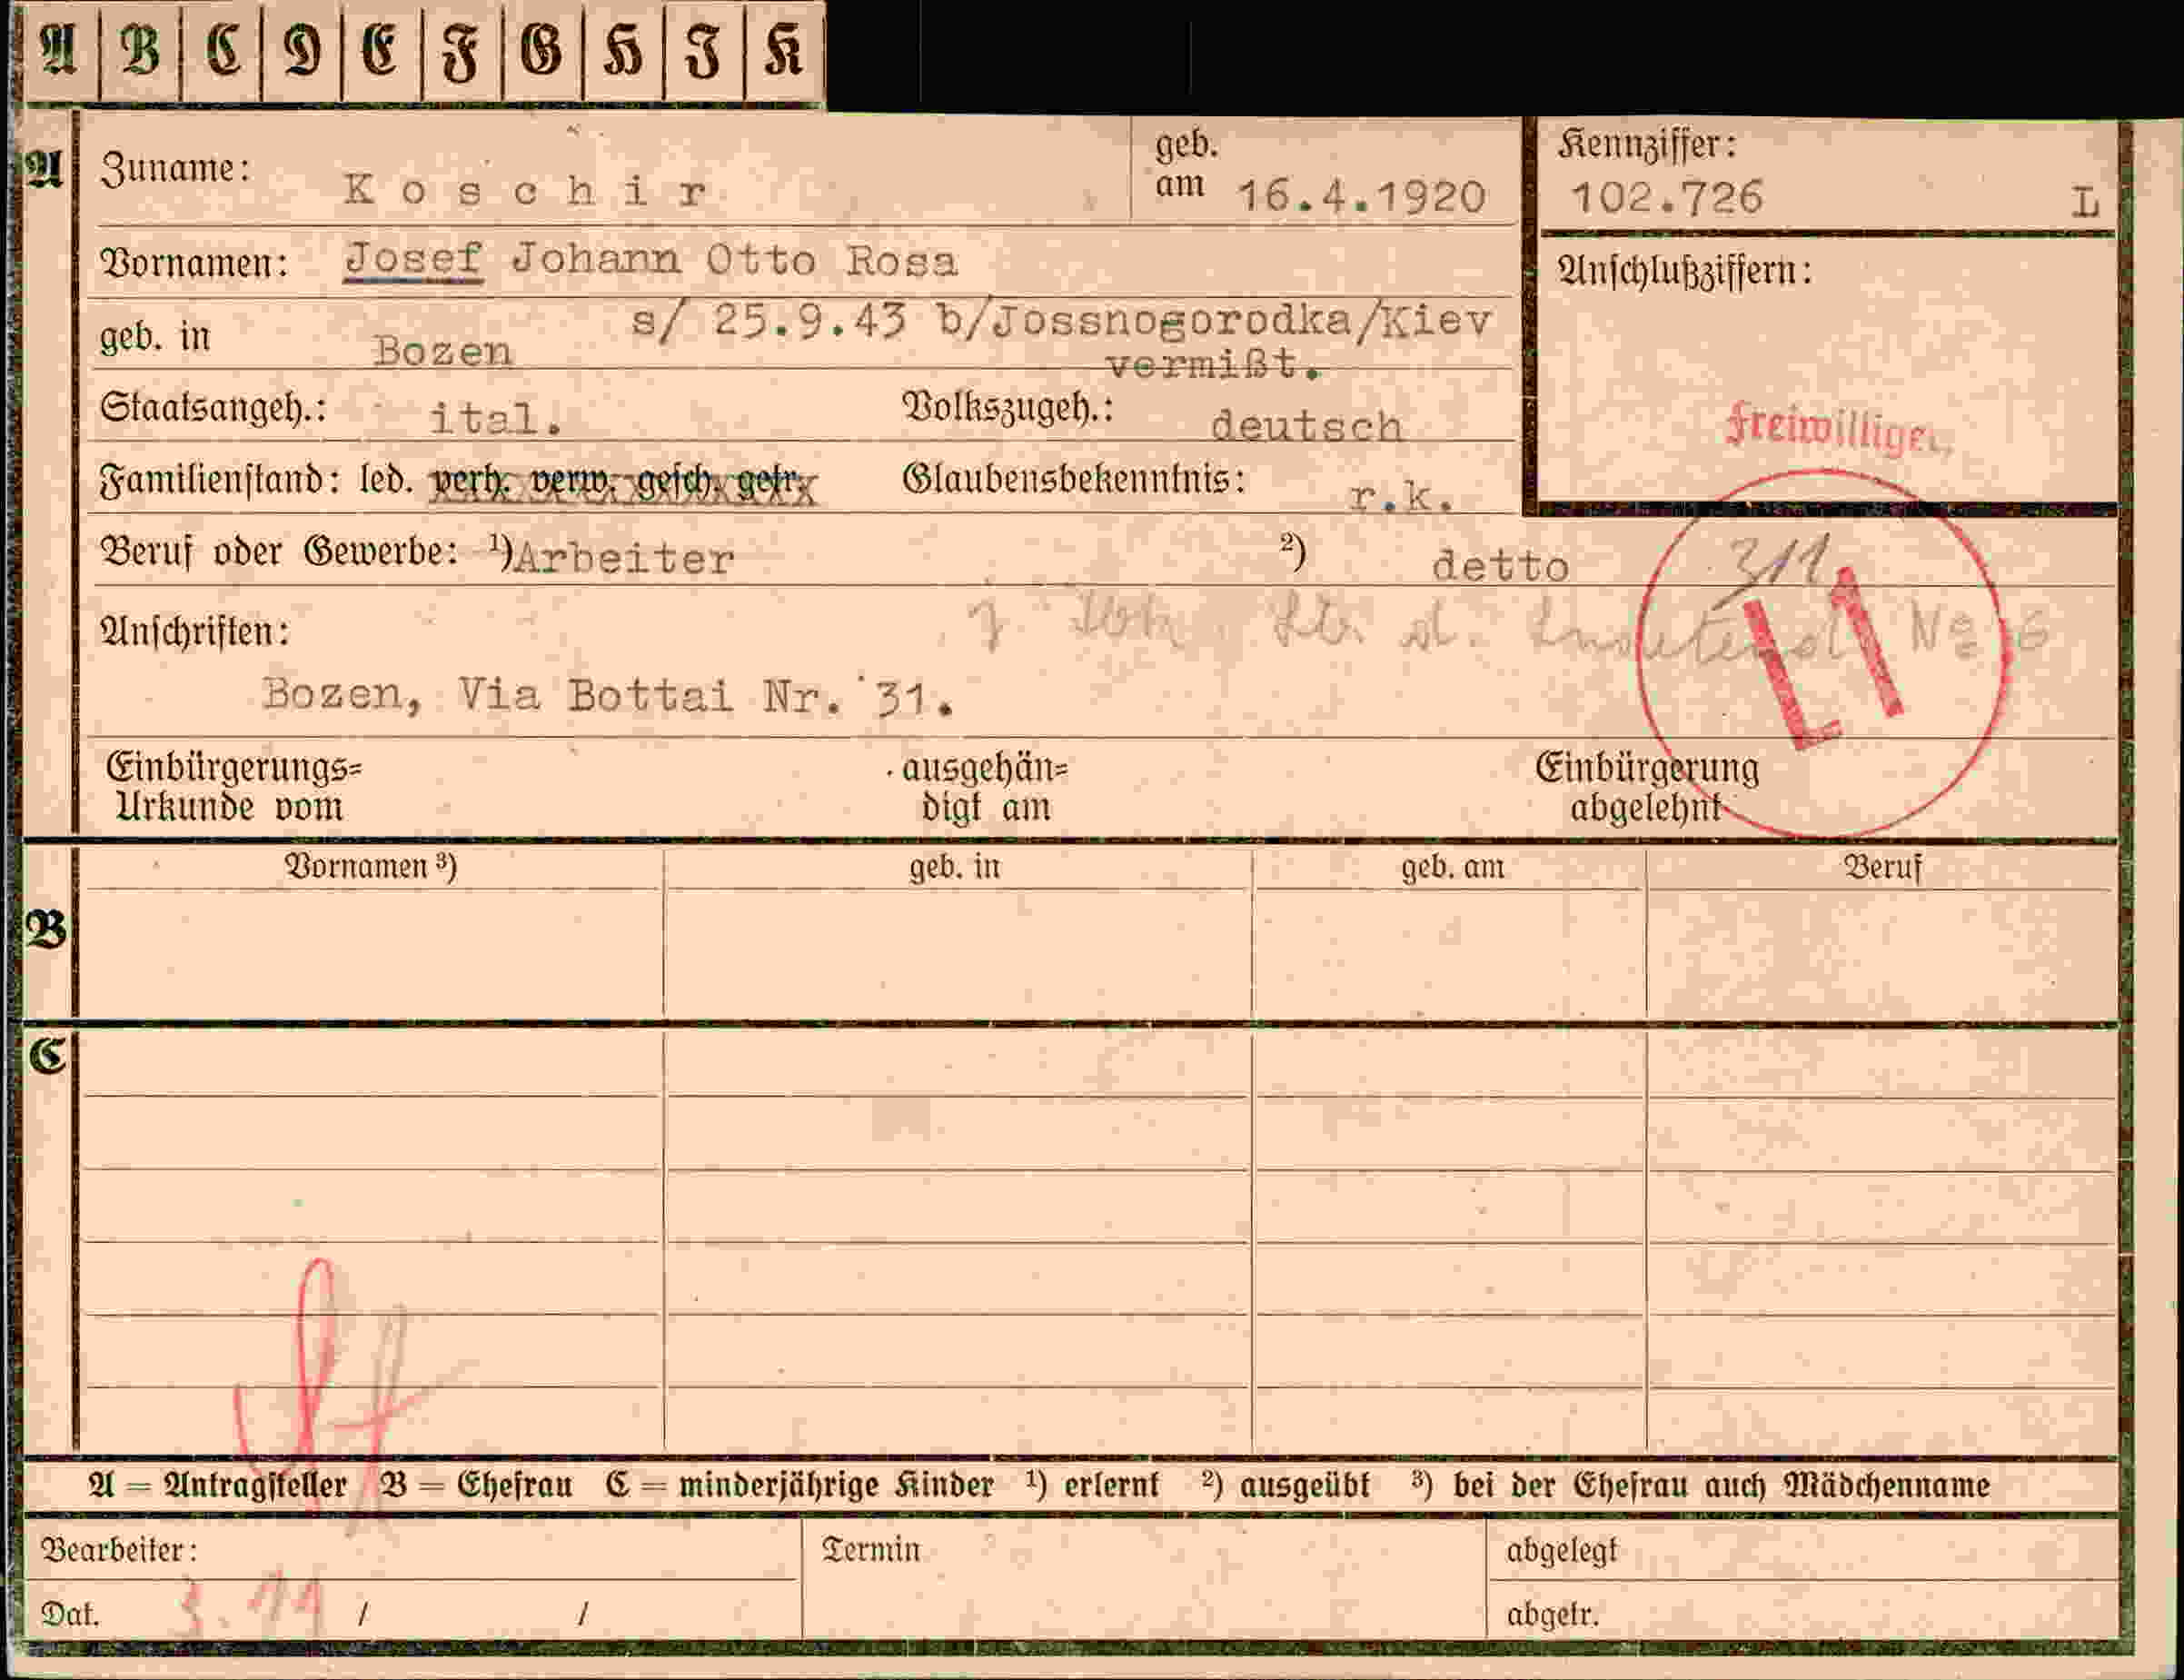 A B C D E F G H I K
A
Zuname: Koschir
geb. am 16.4.1920
Kennziffer:
102.726 L
Vornamen: Josef Johann Otto Rosa
Anschlußziffern:
s/ 25.9.43 b/Jossnogorodka/Kiev
geb. in Bozen
vermißt.
Staatsangeh.: ital. Volkszugeh.: deutsch
Freiwilliger
Familienstand: led. verh. verw. gesch. getr. Glaubensbekenntnis: r.k.
Beruf oder Gewerbe: ¹) Arbeiter ²) detto
311
L1
Anschriften:
Nº 6
Bozen, Via Bottai Nr. 31.
Einbürgerungs=
Urkunde vom
ausgehän=
digt am
Einbürgerung
abgelehnt
Vornamen ³) geb. in geb. am Beruf
B
C
A = Antragsteller B = Ehefrau C = minderjährige Kinder ¹) erlernt ²) ausgeübt ³) bei der Ehefrau auch Mädchenname
Bearbeiter: Termin abgelegt
Dat. / / abgetr.